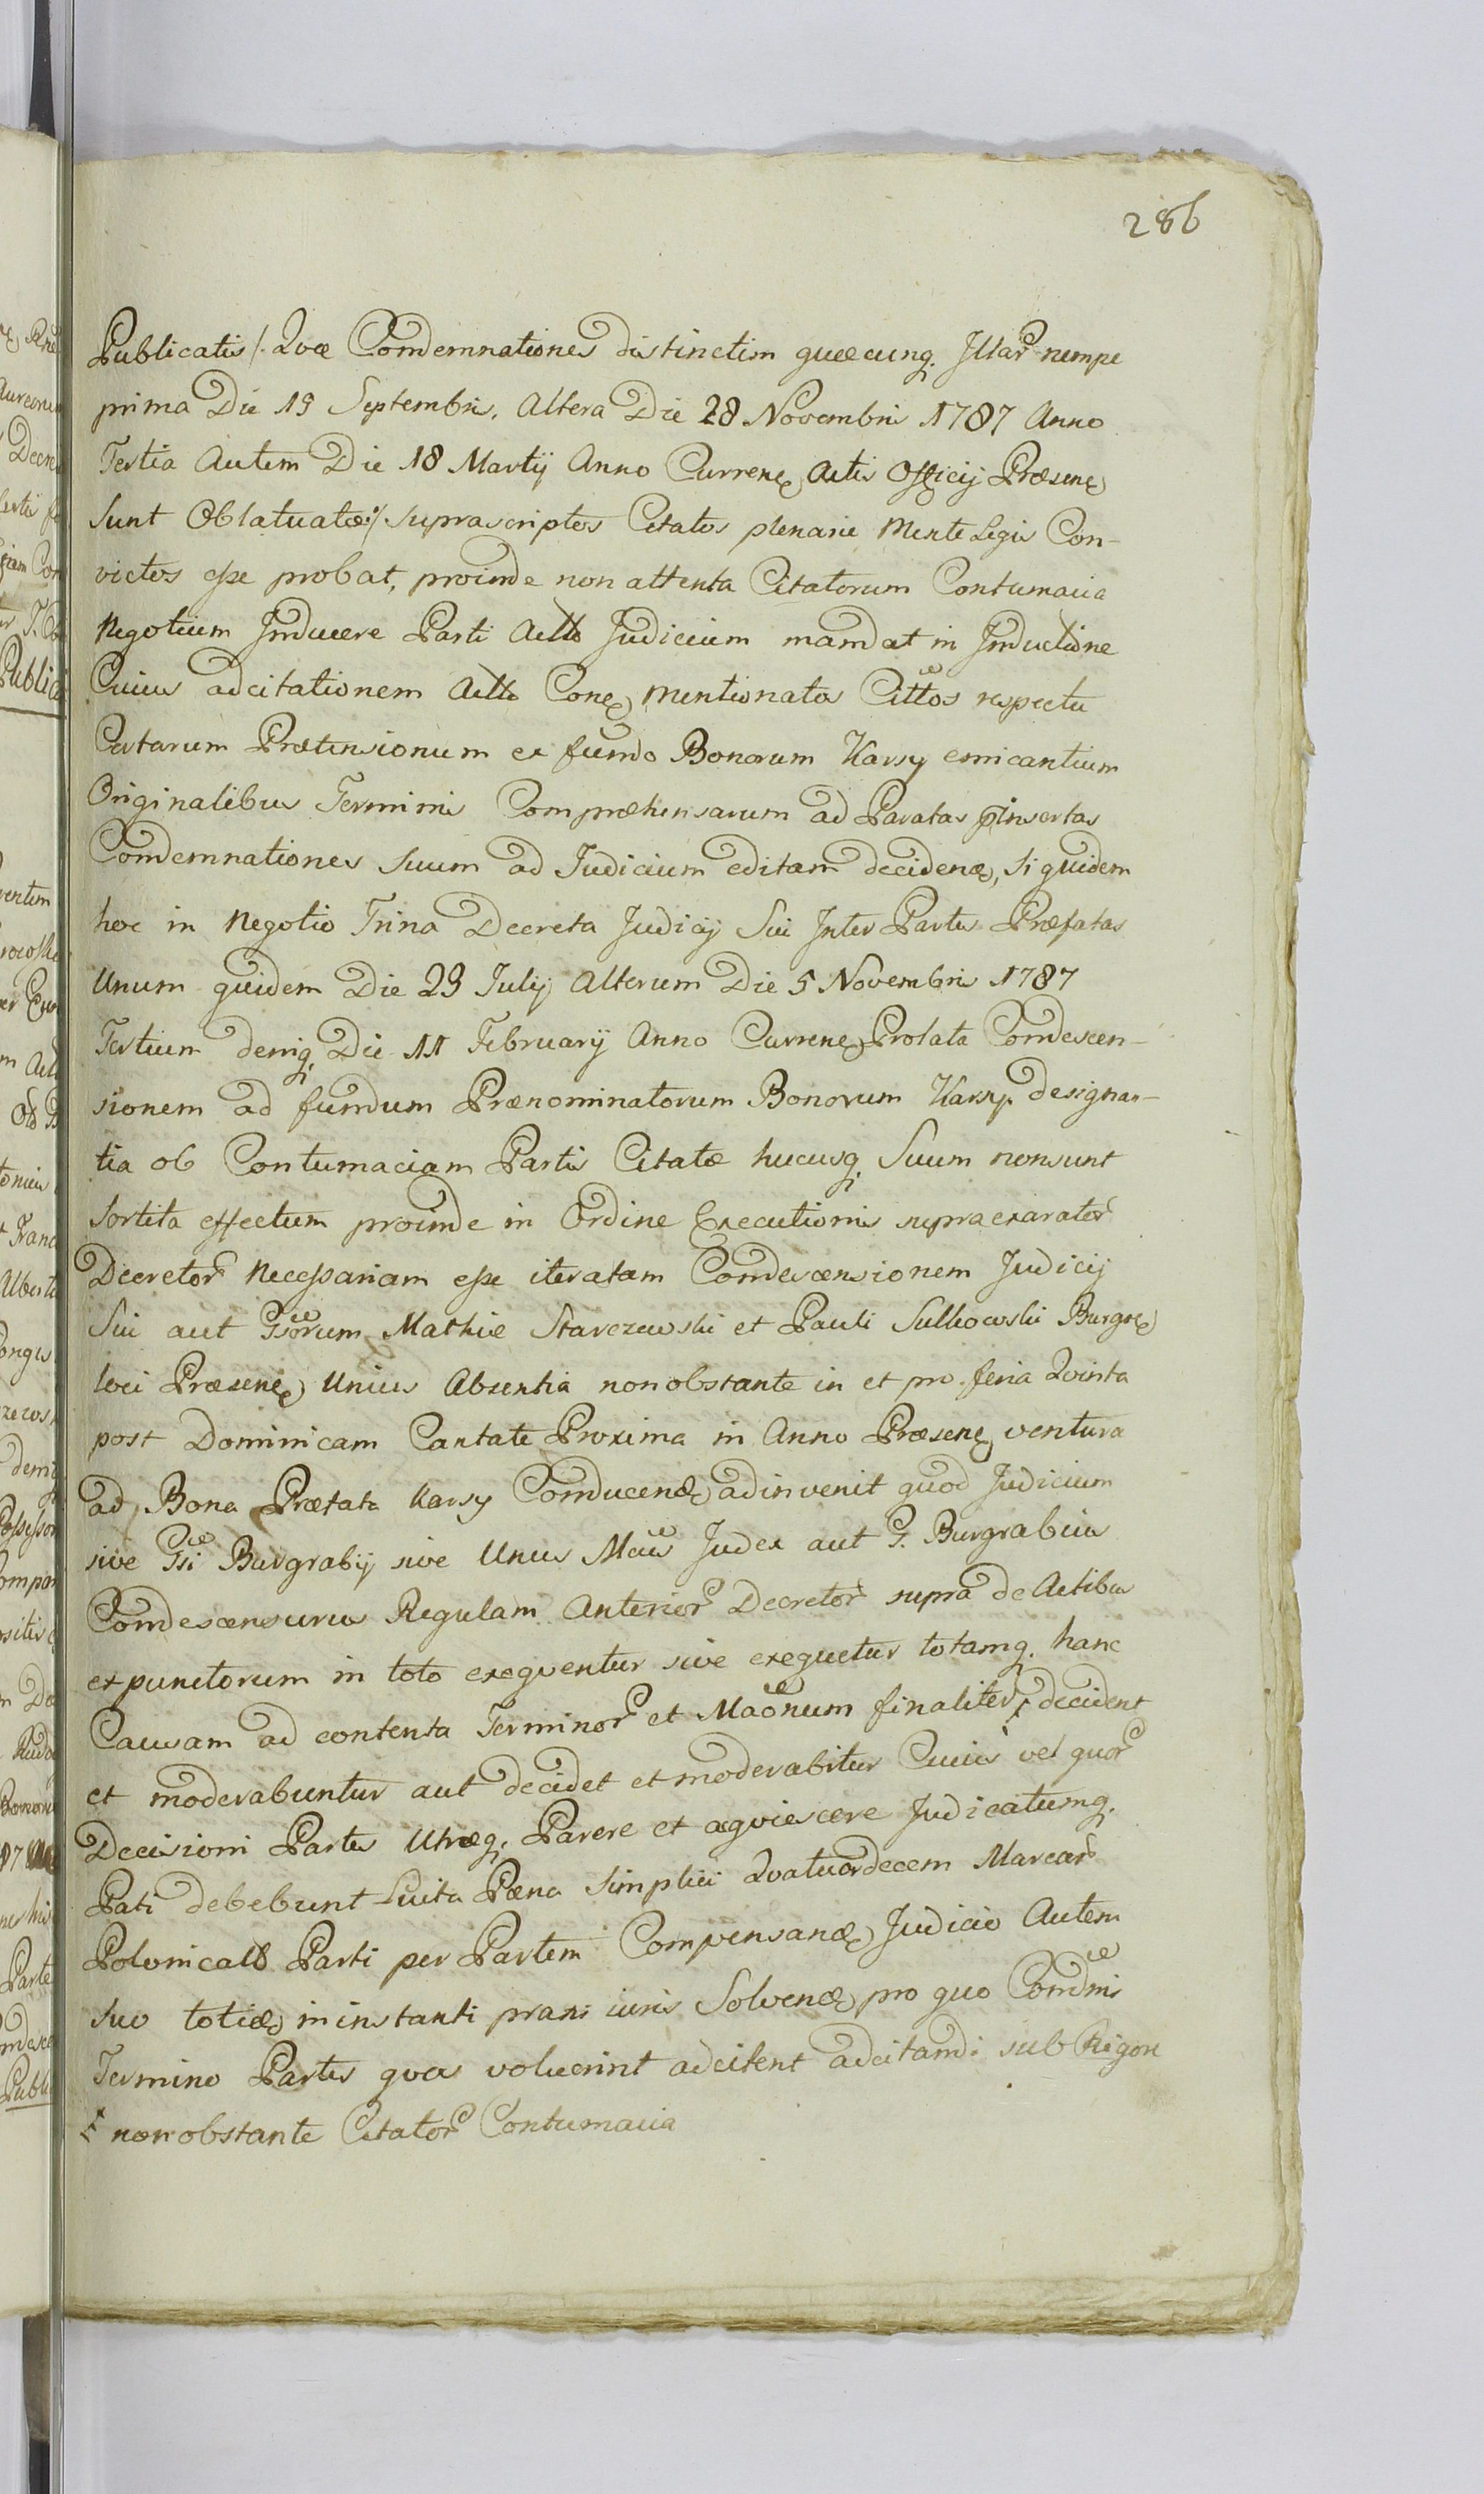 286
Publicatis /. Qvæ Condemnationes distinctim quæcunq. Illar nempe
prima Die 19 Septembris. Altera Die 28 Novembris 1787 Anno
Tertia Autem Die 18 Martij Anno Curren Actis Officij Præsen
Sunt Oblatuatæ :/ suprascriptos Citatos plenarie Mente Legis Con-
victos esse probat, proinde non attenta Citatorum Contumacia
Negotium Inducere Parti Actto Judicium mandat in Inductione
Cuius adcitationem Actto Con mentionatos Cittos respectu
Certarum Prætensionum ex fundo Bonorum Karsy emicantium
Originalibus Terminis Compræhensarum ad Paratas insertas
Condemnationes suum ad Judicium editam deciden, siquidem
hoc in Negotio Trina Decreta Judicij Sui Inter Partes Præfatas
Unum quidem Die 23 Julij Alterum Die 5 Novembris 1787
Tertium deniq Die 11 February Anno Curren Prolata Condescen-
sionem ad fundum Prænominatorum Bonorum Karsy designan-
tia ob Contumaciam Partis Citatæ hucusq. Suum non sunt
Sortita effectum proinde in Ordine Executionis supraexarator
Decretor Necessariam esse iteratam Condescensionem Judicij
Sui aut Gsorum Mathiæ Starczewski et Pauli Sulkowski Burgr
loci Præsen Unius Absentia non obstante in et pro feria Qvinta
post Dominicam Cantate Proxima in Anno Præsen ventura
ad Bona Præfata Karsy Conducen adinvenit quod Judicium
sive Gsi Burgrabij sive Unus Mcus Judex aut G. Burgrabius
Condescensurus Regulam Anterior Decretor supra de Actibus
expunctorum in toto exeqventur sive exequetur totamq. hanc
Causam ad contenta Terminor et Maonum finaliter ⁒ decident
et moderabuntur aut decidet et moderabitur Cuius vel quor
Decisioni Partes Utræq. Parere et acqviescere Judicatumq.
Pati debebunt Luita Pæna simplici Qvatuordecem Marcar
Polonicall Parti per Partem Compensan Judicio Autem
suo totid in instanti praxi iuris Solven pro quo Condnis
Termino Partes qvos voluerint adcitent adcitandi sub Rigore
⁒ non obstante Citator Contumacia